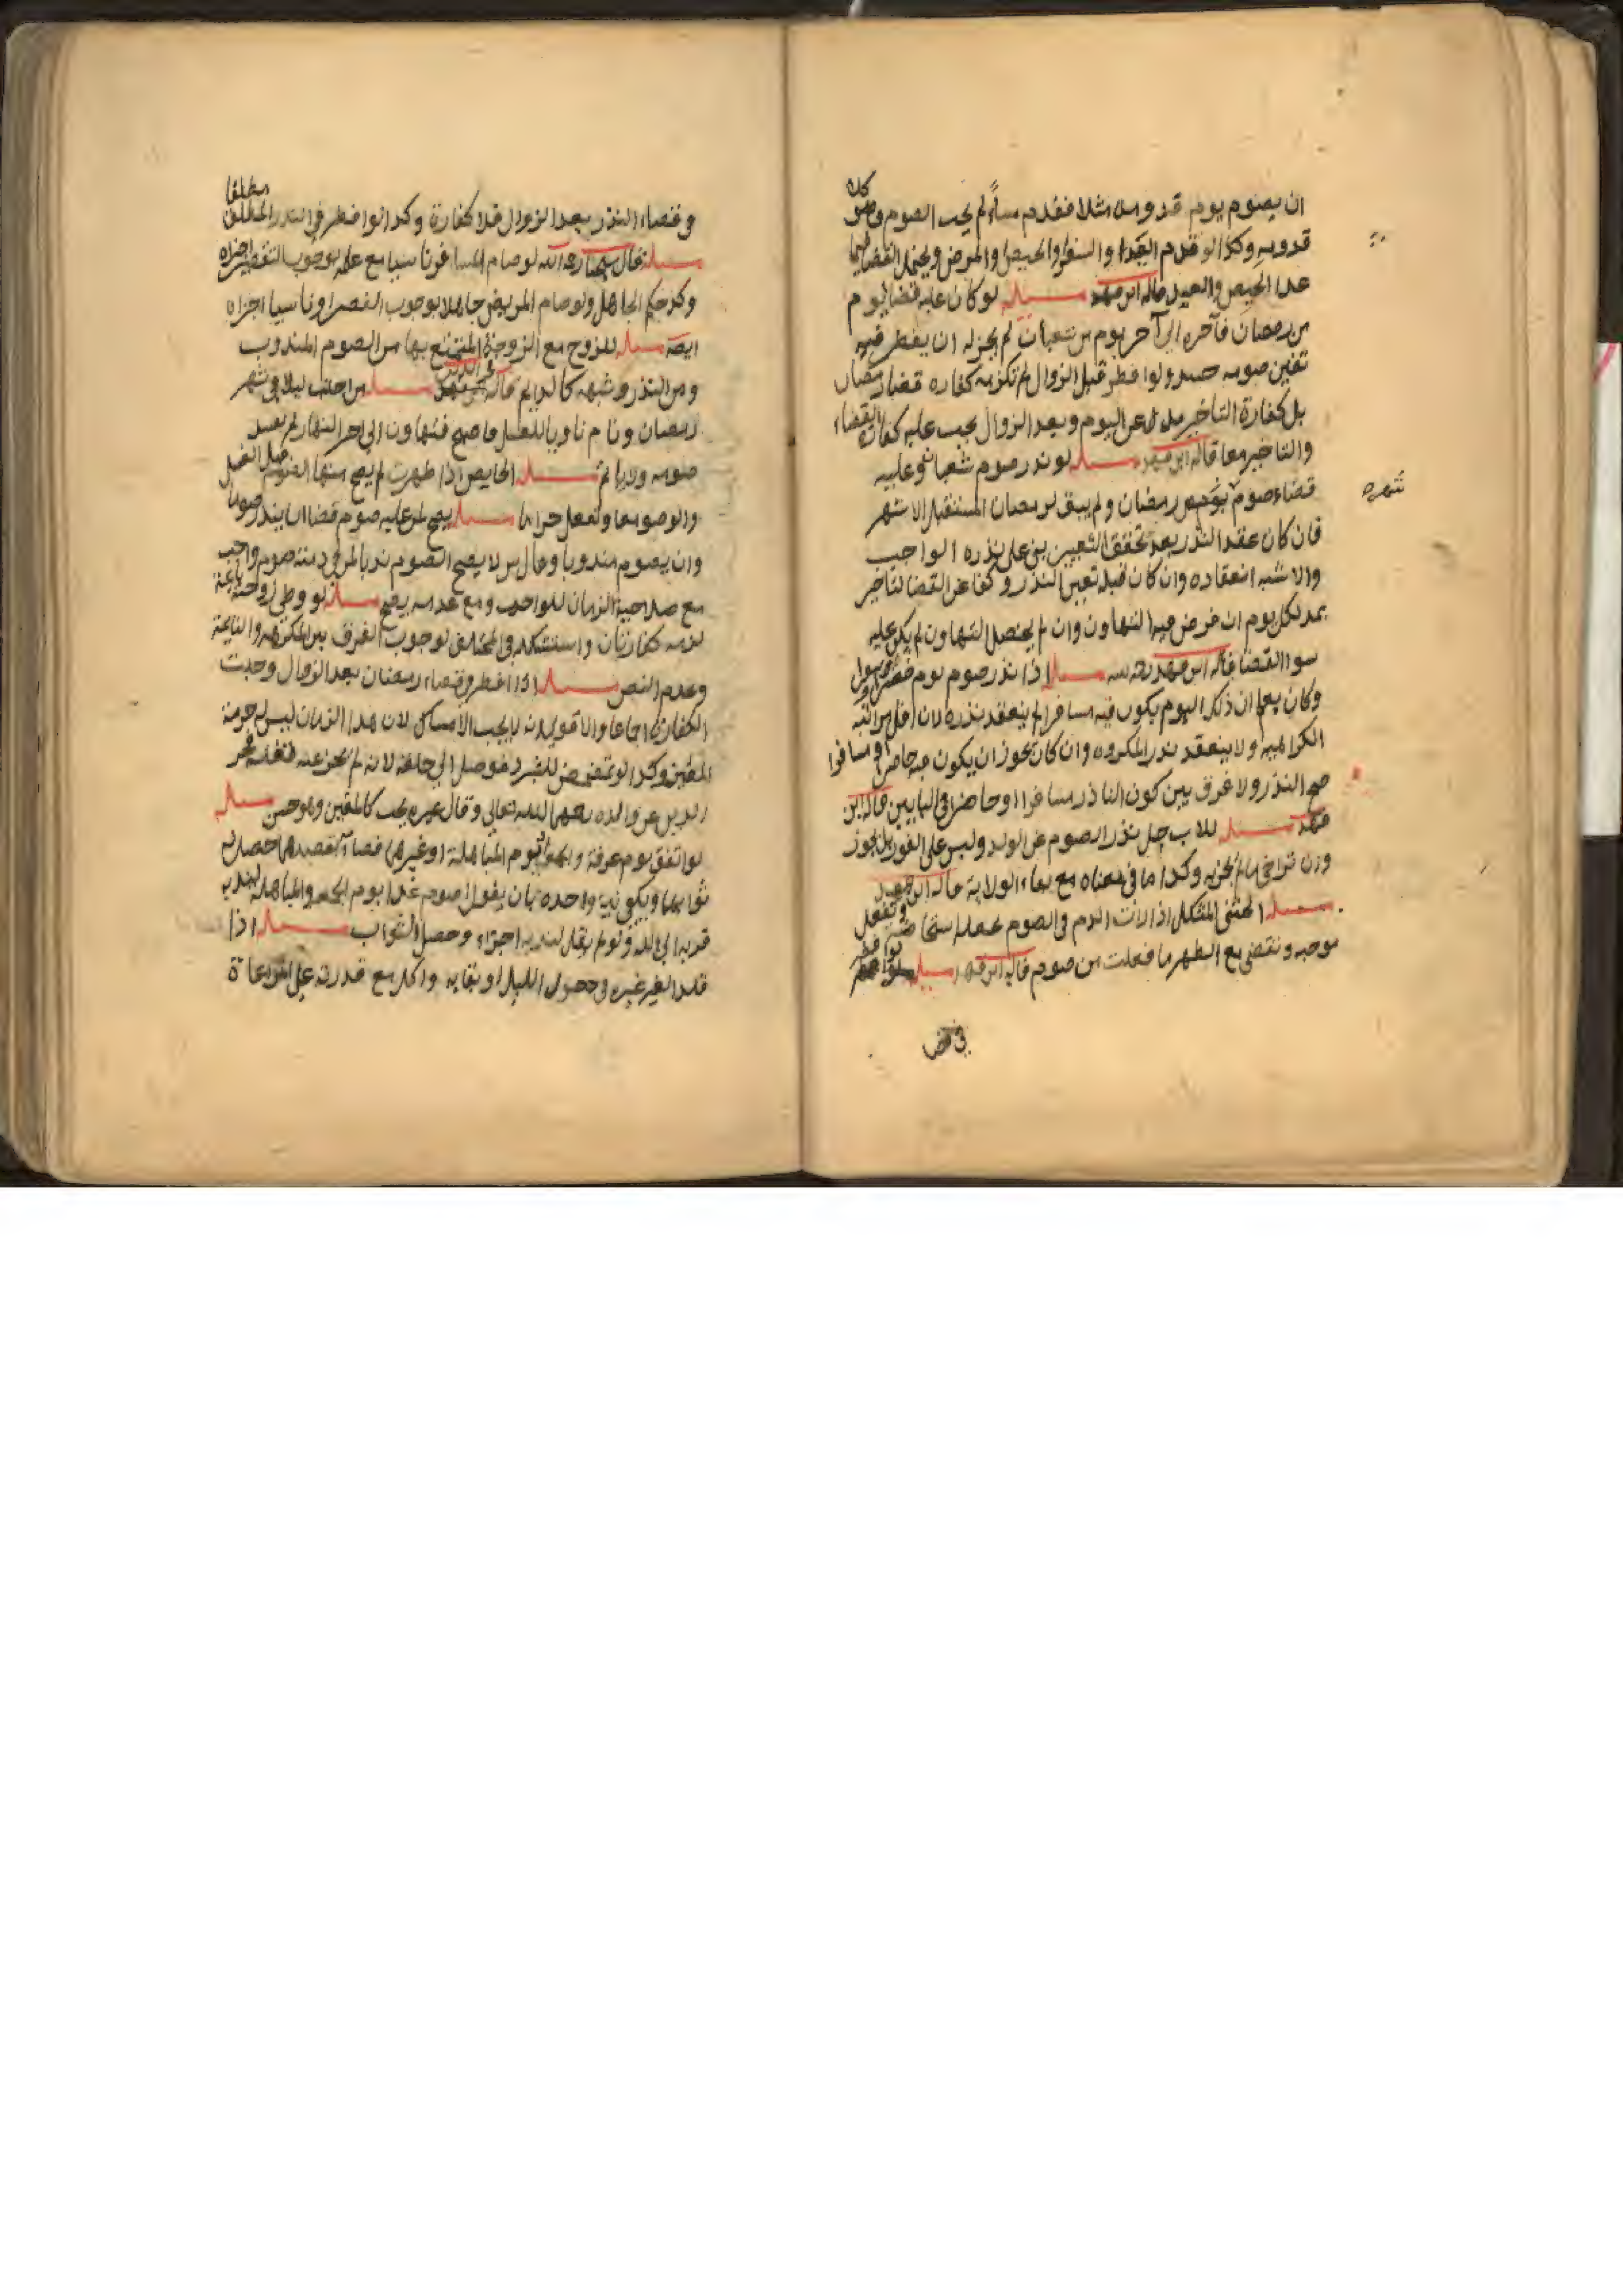 ان يصوم يوم قدومه مثلا فقدم مساءً لم يجب الصوم
قدومه وكذا لو قدم العيد او السفر او الحيض والمرض ويحتمل القضا
عدا الحيض والعيد قاله ابن فهد مسئلة لو كان عليه قضا يوم
من رمضان فآخره الى آخر يوم من شعبان لم يجز له ان يفطر فيه
تعين صومه ولو افطر قبل الزوال لم تلزمه كفاره قضا رمضان
بل كفارة التاخير عن اليوم وبعد الزوال يجب عليه كفارة القضاء
والتاخير معا قاله ابن فهد مسئلة لو نذر صوم شعبان وعليه
قضاء صوم من رمضان ولم يبق لرمضان المستقبل الا شهر
شهره
فان كان عقد النذر بعد تحقق التعيين بنى على نذره الواجب
والاشبه انعقاده وان كان قبله تعين النذر وكفا عن القضا لتاخير
بمد لكل يوم ان فرض فيه التهاون وان لم يحصل التهاون لم يكن عليه
سوا القضا قاله ابن فهد مسئلة اذا نذر صوم يوم
وكان يعلم ان ذلك اليوم يكون فيه مسافرا لم ينعقد نذره لان اقل مراتبه
الكراهية ولا ينعقد نذر المكروه وان كان يجوز ان يكون فيه حاضرا او مسافرا
صح النذر ولا فرق بين كون الناذر مسافرا او حاضرا في البابين قاله ابن
فهد مسئلة للاب حل نذر الصوم عن الولد وليس على الفور بل يجوز
وان تراخى ما لم يجزه وكذا ما في معناه مع بقاء الولاية قاله ابن فهد
مسئلة الخنثى المشكل اذا رات الدم في الصوم وتفعل
موجبه وتقضي مع الطهر ما فعلت من صوم قاله ابن فهد مسئلة لو افطر
في قضا
وقضاء النذر بعد الزوال فلا كفارة وكذا لو افطر في النذر المطلق مطلقا
مسئلة قال رحمه الله لو صام المسافر ناسيا مع علمه بوجوب التقصير اجزاه
وكذا حكم الجاهل ولو صام المريض جاهلا بوجوب القصر او ناسيا اجزاه
ايضا مسئلة للزوج مع الزوجة المتمتع بها من الصوم المندوب
ومن النذر وشبهه كالدايم قاله مسئلة من اجنب ليلا في شهر
رمضان ونام ناويا للغسل واصبح فتهاون الى اخر النهار لم يفسد
صومه ولا ياثم مسئلة الحايض اذا طهرت لم يصح منها الصوم قبل الغسل
والوضو وتفعل حراما مسئلة يصح لمن عليه صوم قضا ان ينذر صوما
وان يصوم مندوبا وقال من لا يصح الصوم ندبا لمن في ذمته صوم واجب
مع صلاحية الزمان للواجب ومع عدمه يصح مسئلة لو وطى زوجته نايمة
لزمه كفارتان واستشكله في المختلف لوجوب الفرق بين المكرهه والنايمة
وعدم النص مسئلة اذا افطر في قضاء رمضان بعد الزوال وجبت
الكفارة اجماعا والاقوى انه لا يجب الامساك لان هذا الزمان ليس له حرمة
المعين وكذا لو تمضمض للتبرد فوصل الى حلقه لانه لم يتحرز عنه فخر
الدين عن والده رحمهما الله تعالى وقال غيره يجب كالمعين وهو حسن مسئلة
لو اتفق يوم عرفة والجمعة او يوم المباهلة او غيرها فصامه بقصدهما حصل له
ثوابهما ويكفي نية واحدة بان يقول اصوم غدا يوم الجمعة والمباهلة لندبه
قربة الى الله ولو لم يقل لندبه اجزاء وحصل الثواب مسئلة اذا
قلد الغير غيره في حصول الليل او بقايه واكل مع قدرته على المراعاة